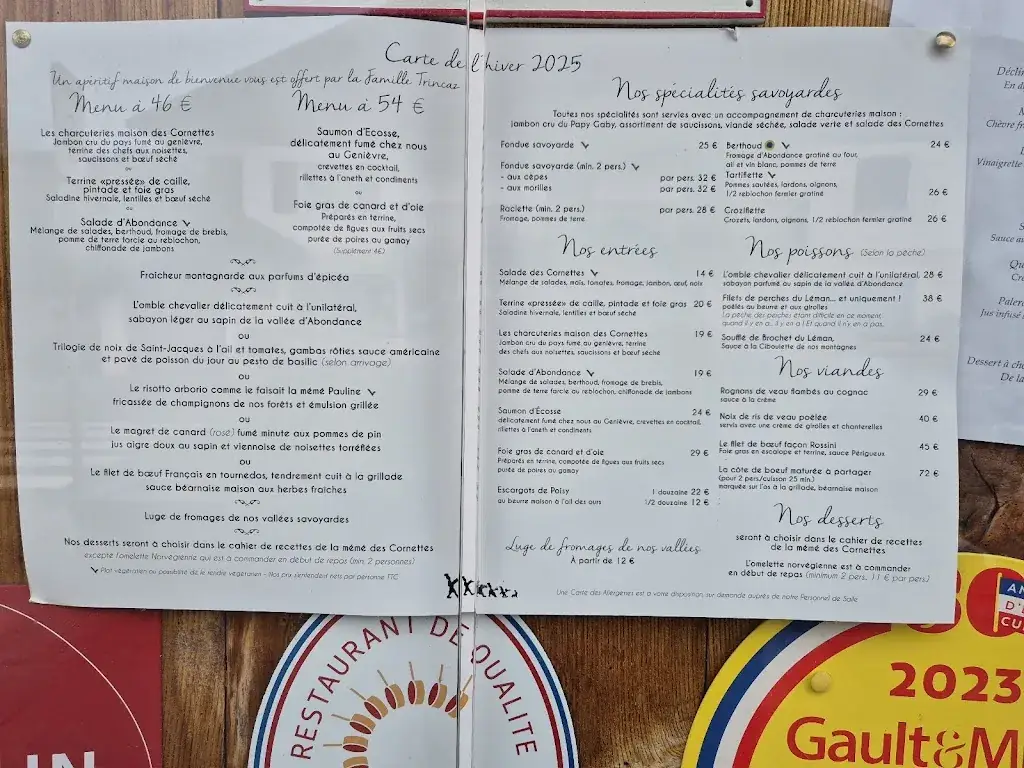 Carte de l'hiver 2025
Un apéritif maison de bienvenue vous est offert par la Famille Trincaz
Menu à 46 €
Les charcuteries maison des Cornettes
Jambon cru du pays fumé au genièvre,
terrine des chefs aux noisettes,
saucissons et bœuf séché
ou
Terrine «pressée» de caille,
pintade et foie gras
Saladine hivernale, lentilles et bœuf séché
ou
Salade d'Abondance
Mélange de salades, berthoud, fromage de brebis,
pomme de terre farcie au reblochon,
chiffonade de jambons
Menu à 54 €
Saumon d'Ecosse,
délicatement fumé chez nous
au Genièvre,
crevettes en cocktail,
rillettes à l'aneth et condiments
ou
Foie gras de canard et d'oie
Préparés en terrine,
compotée de figues aux fruits secs
purée de poires au gamay
(Supplément 4€)
Fraîcheur montagnarde aux parfums d'épicéa
L'omble chevalier délicatement cuit à l'unilatéral,
sabayon léger au sapin de la vallée d'Abondance
ou
Trilogie de noix de Saint-Jacques à l'ail et tomates, gambas rôties sauce américaine
et pavé de poisson du jour au pesto de basilic (selon arrivage)
ou
Le risotto arborio comme le faisait la mémé Pauline
fricassée de champignons de nos forêts et émulsion grillée
ou
Le magret de canard (rosé) fumé minute aux pommes de pin
jus aigre doux au sapin et viennoise de noisettes torréfiées
ou
Le filet de bœuf Français en tournedos, tendrement cuit à la grillade
sauce béarnaise maison aux herbes fraîches
Luge de fromages de nos vallées savoyardes
Nos desserts seront à choisir dans le cahier de recettes de la mémé des Cornettes
excepté l'omelette Norvégienne qui est à commander en début de repas (min. 2 personnes)
Plat végétarien ou possibilité de le rendre végétarien - Nos prix s'entendent nets par personne TTC
Nos spécialités savoyardes
Toutes nos spécialités sont servies avec un accompagnement de charcuteries maison :
jambon cru du Papy Gaby, assortiment de saucissons, viande séchée, salade verte et salade des Cornettes
Fondue savoyarde 25 €
Fondue savoyarde (min. 2 pers.)
- aux cèpes par pers. 32 €
- aux morilles par pers. 32 €
Raclette (min. 2 pers.) par pers. 28 €
Fromage, pommes de terre
Berthoud 24 €
Fromage d'Abondance gratiné au four,
ail et vin blanc, pommes de terre
Tartiflette
Pommes sautées, lardons, oignons,
1/2 reblochon fermier gratiné 26 €
Croziflette
Crozets, lardons, oignons, 1/2 reblochon fermier gratiné 26 €
Nos entrées
Salade des Cornettes 14 €
Mélange de salades, maïs, tomates, fromage, jambon, œuf, noix
Terrine «pressée» de caille, pintade et foie gras 20 €
Saladine hivernale, lentilles et bœuf séché
Les charcuteries maison des Cornettes 19 €
Jambon cru du pays fumé au genièvre, terrine
des chefs aux noisettes, saucissons et bœuf séché
Salade d'Abondance 19 €
Mélange de salades, berthoud, fromage de brebis,
pomme de terre farcie au reblochon, chiffonade de jambons
Saumon d'Ecosse 24 €
délicatement fumé chez nous au Genièvre, crevettes en cocktail,
rillettes à l'aneth et condiments
Foie gras de canard et d'oie 29 €
Préparés en terrine, compotée de figues aux fruits secs
purée de poires au gamay
Escargots de Poisy 1 douzaine 22 €
au beurre maison à l'ail des ours 1/2 douzaine 12 €
Luge de fromages de nos vallées
À partir de 12 €
Nos poissons (Selon la pêche)
L'omble chevalier délicatement cuit à l'unilatéral, 28 €
sabayon parfumé au sapin de la vallée d'Abondance
Filets de perches du Léman... et uniquement ! 38 €
poêlés au beurre et aux girolles
La pêche des perches étant difficile en ce moment,
quand il y en a... il y en a ! Et quand il n'y en a pas...
Soufflé de Brochet du Léman, 24 €
Sauce à la Ciboulette de nos montagnes
Nos viandes
Rognons de veau flambés au cognac 29 €
sauce à la crème
Noix de ris de veau poêlée 40 €
servis avec une crème de girolles et chanterelles
Le filet de bœuf façon Rossini 45 €
Foie gras en escalope et terrine, sauce Périgueux
La côte de boeuf maturée à partager 72 €
(pour 2 pers/cuisson 25 min.)
marquée sur l'os à la grillade, béarnaise maison
Nos desserts
seront à choisir dans le cahier de recettes
de la mémé des Cornettes
L'omelette norvégienne est à commander
en début de repas (minimum 2 pers. 11 € par pers.)
Une Carte des Allergènes est à votre disposition sur demande auprès de notre Personnel de Salle
Déclin
En d
Chèvre fr
Vinaigrette
Sauce au
Qu
Cre
Paler
Jus infusé
Dessert à cho
De la
IN
RESTAURANT DE QUALITÉ
AN
D'
CU
2023
Gault&M